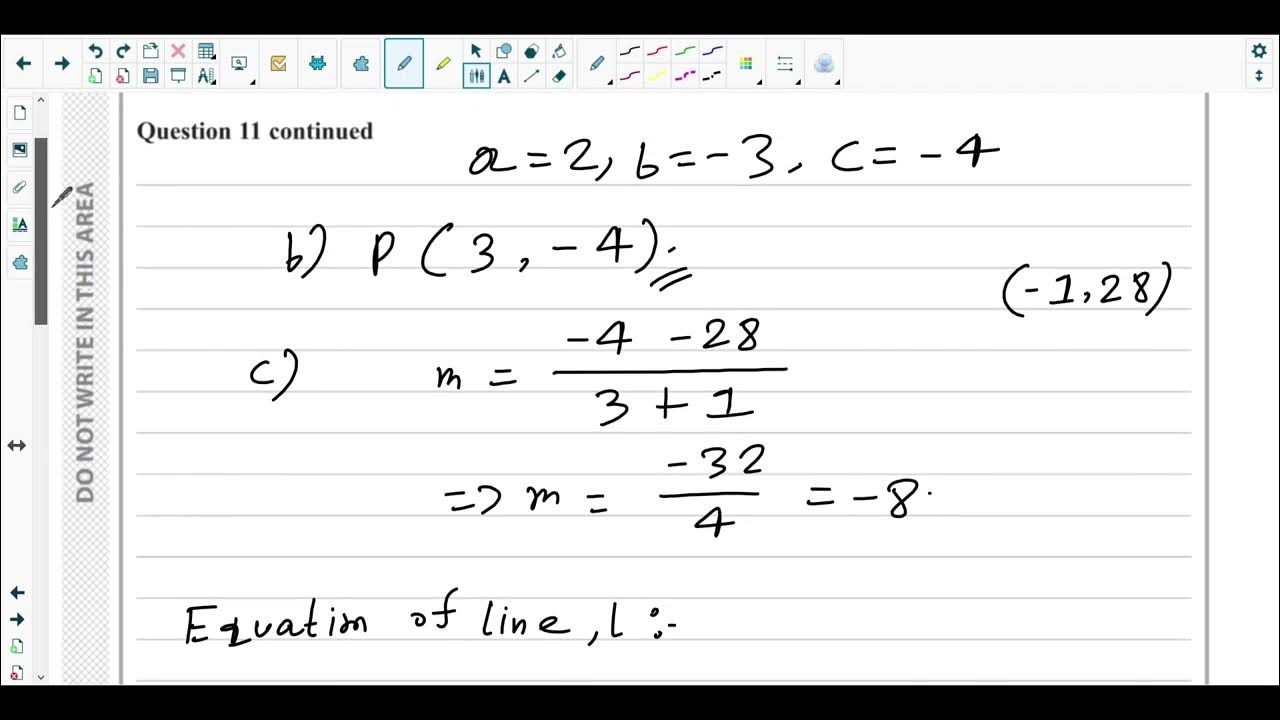 Question 11 continued
a = 2, b = -3, c = -4
b) P (3, -4).
(-1, 28)
c) m = \frac{-4 -28}{3 + 1}
=> m = \frac{-32}{4} = -8.
Equation of line, l :-
DO NOT WRITE IN THIS AREA